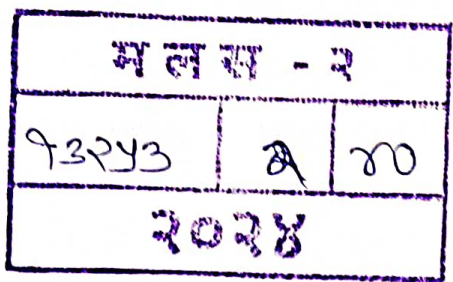 म ल स - २
१३२५३ २ ४०
२०२४